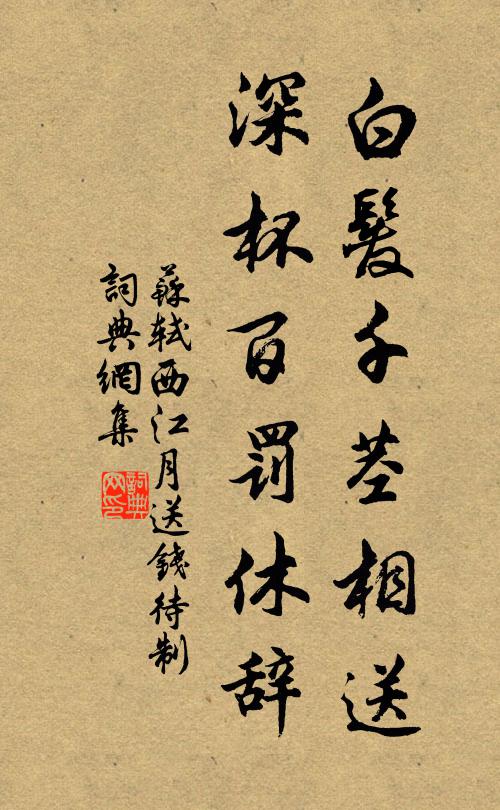 白髮千莖相送
深杯百罰休辞
蘇軾西江月送錢待制
詞典網集
詞典网印